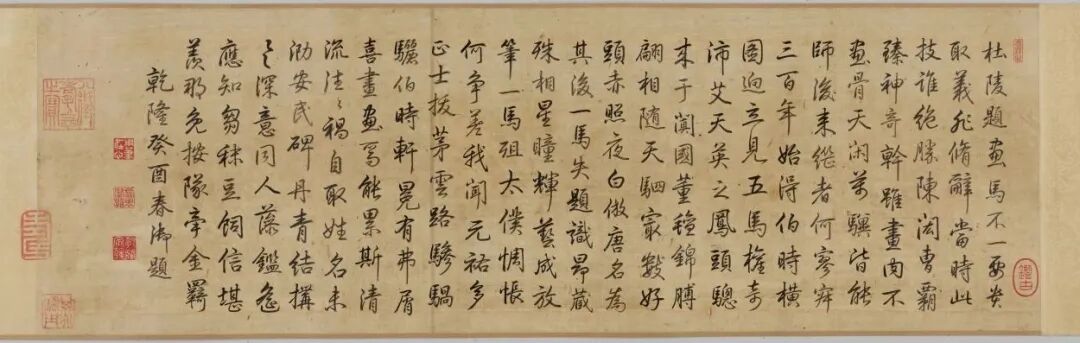 杜陵題畫馬不一要貴
取義非脩辭當時此
技誰絕勝陳閎曹霸
臻神奇幹雖畫肉不
畫骨天閑萬驥皆能
師後來繼者何寥寂
三百年始得伯時橫
圖迥立見五馬權奇
沛艾天英之鳳頭驄
來于闐國董氊錦膊
翩相随天駟最數好
頭赤照夜白倣唐名為
其後一馬失題識昂藏
殊相星瞳輝藝成放
筆一馬殂太僕惆悵
何爭差我聞元祐多
正士拔茅雲路驂騧
驪伯時軒冕有弗屑
喜畫畫馬能累斯清
流禍自取姓名未
泐安民碑丹青結搆
深意同人藻鑑
應知芻秣豆飼信堪
羨那免按隊牽金羈
乾隆癸酉春御題